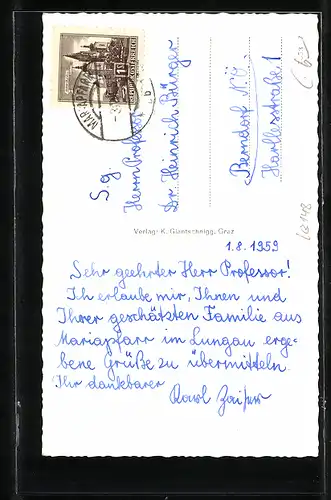 MARIAPFARR
REPUBLIK ÖSTERREICH
S. g.
Herrn Professor
Dr. Heinrich Bürger
Berndorf N.Ö.
Hartlestraße 1
Verlag: K. Glantschnigg, Graz
1.8.1959
Sehr geehrter Herr Professor!
Ich erlaube mir, Ihnen und
Ihrer geschätzten Familie aus
Mariapfarr im Lungau erge-
bene Grüße zu übermitteln.
Ihr dankbarer
Karl